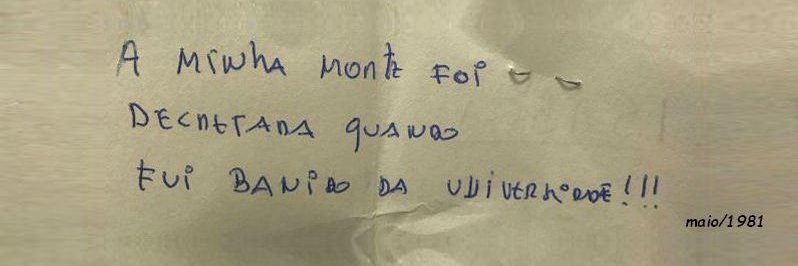 A MINHA MORTE FOI
DECRETADA QUANDO
FUI BANIDO DA UNIVERSIDADE!!!
maio/1981